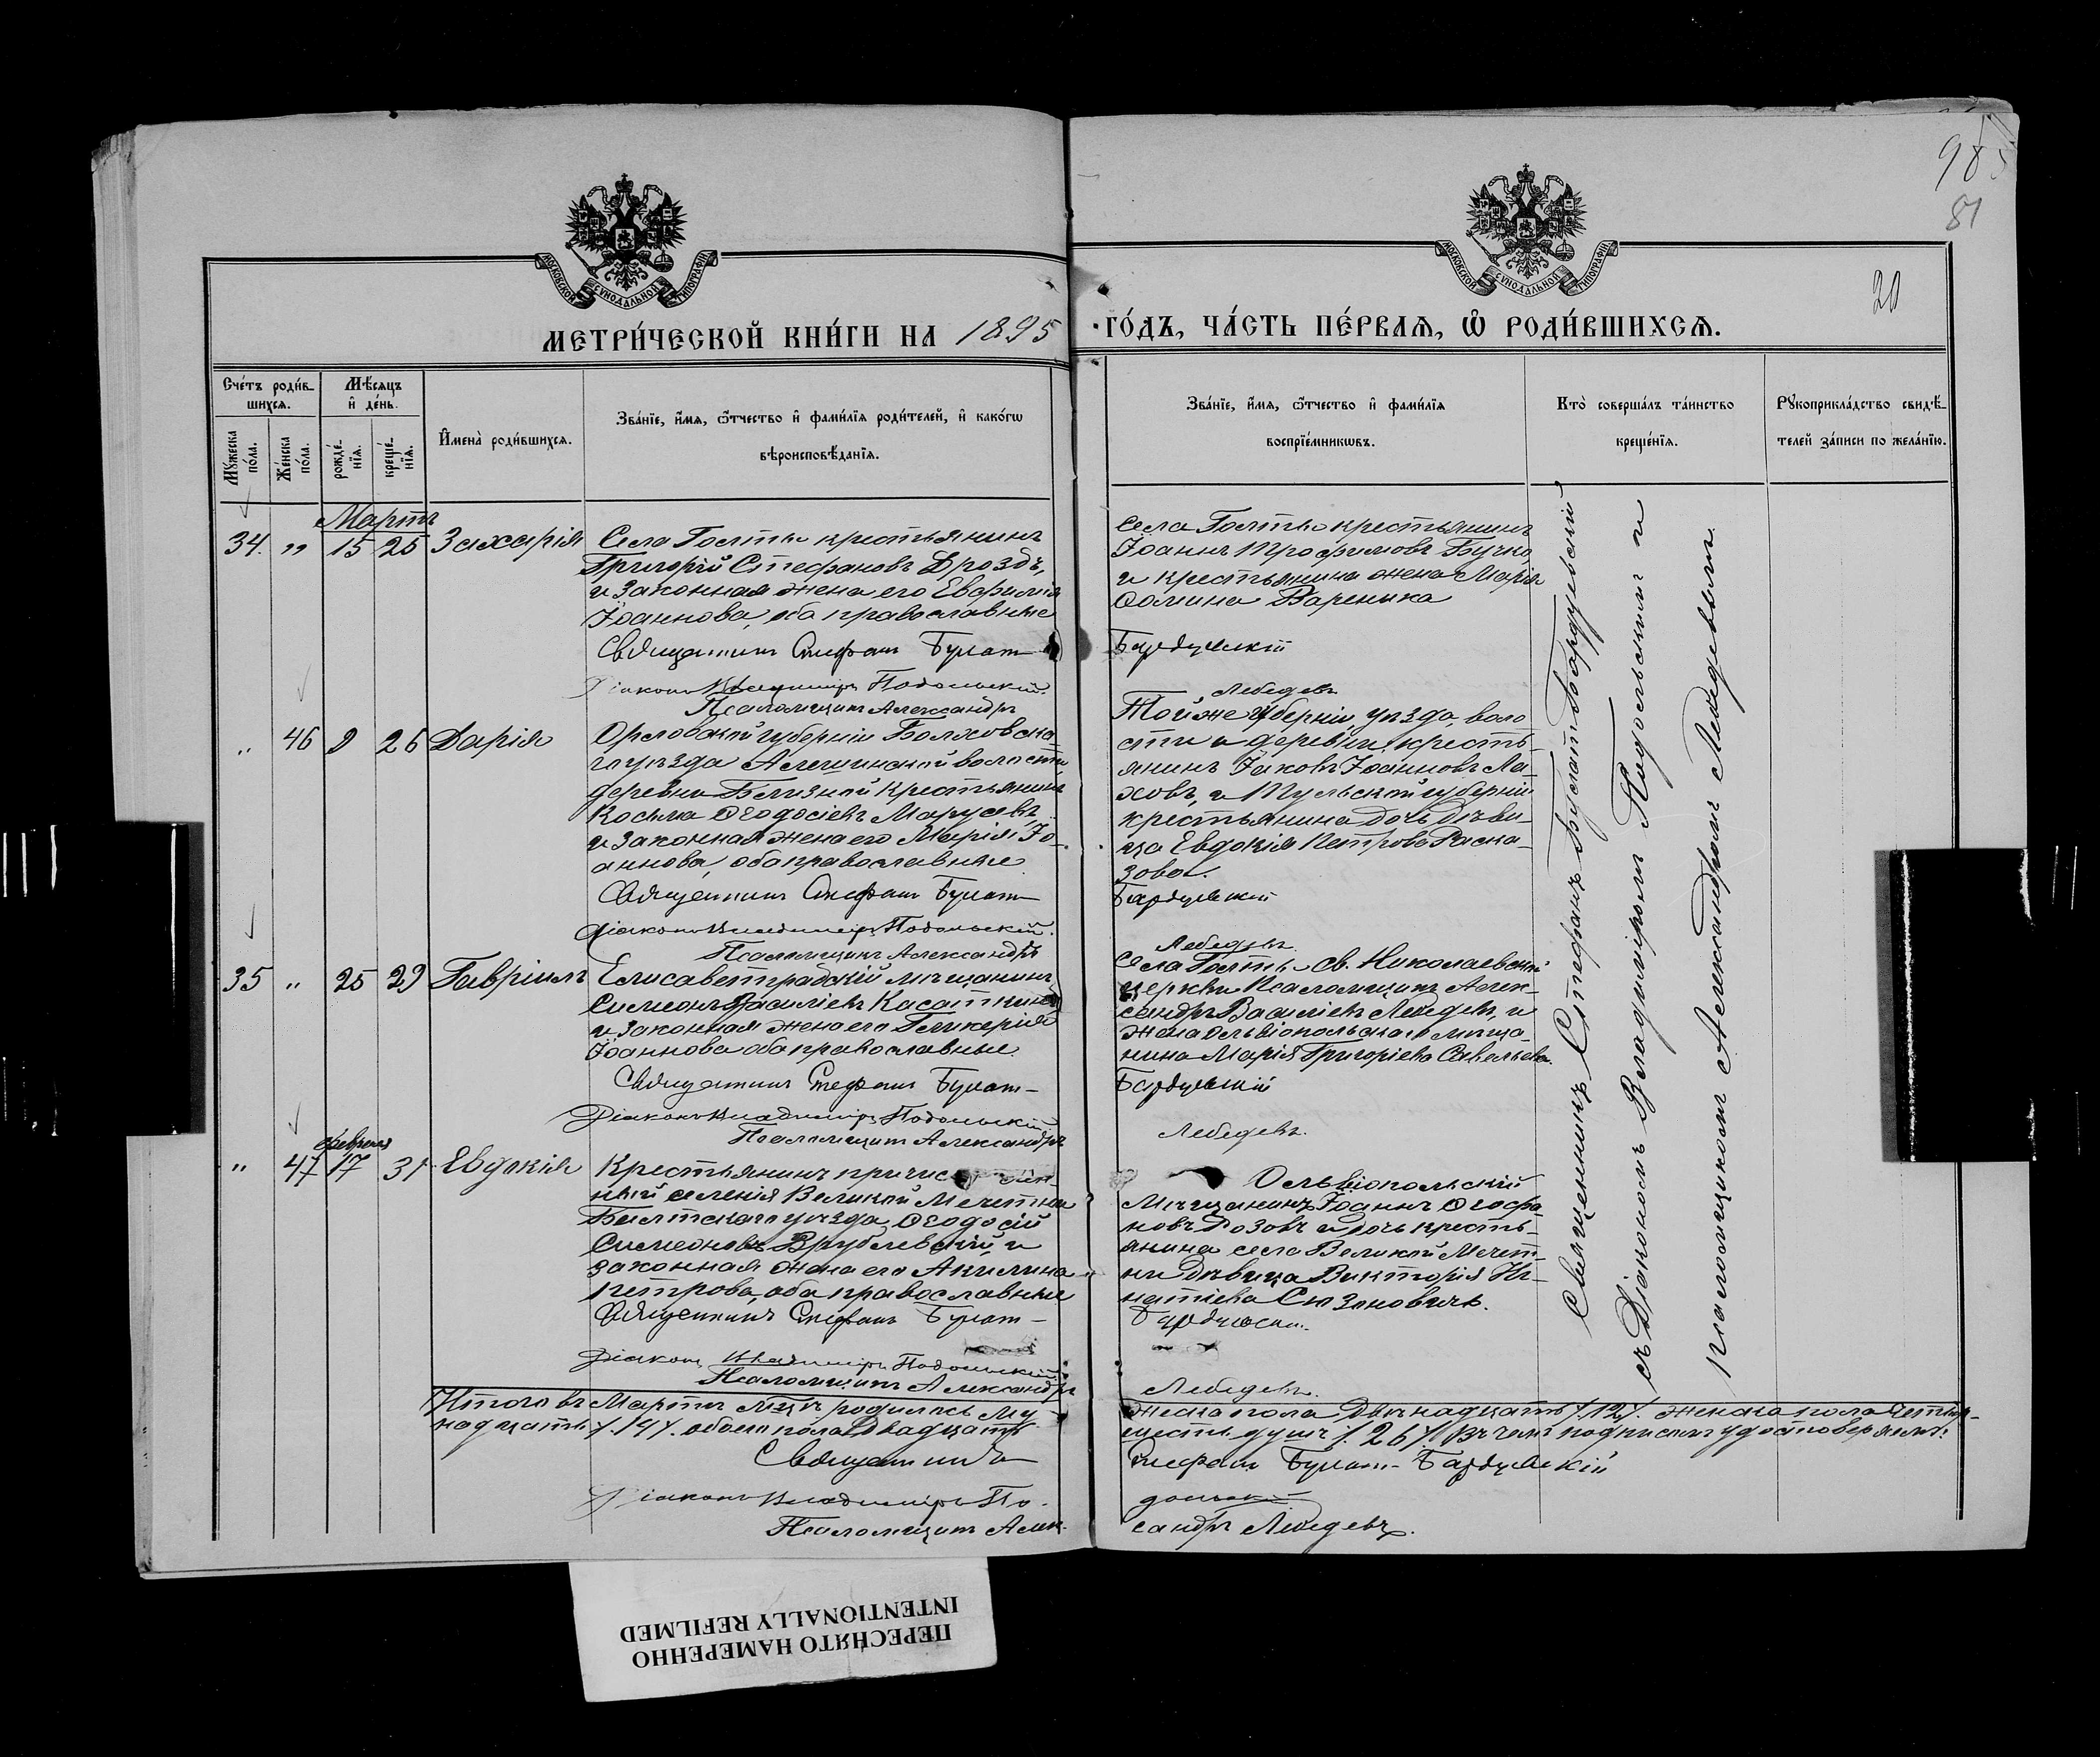 98
81
20
МОСКОВСКОЙ СѴНОДАЛЬНОЙ ТИПОГРАФІИ
МОСКОВСКОЙ СѴНОДАЛЬНОЙ ТИПОГРАФІИ
МЕТРИ́ЧЕСКОЙ КНИ́ГИ НА 1895
ГО́ДЪ, ЧА́СТЬ ПЕ́РВАЯ, Ѿ РОДИ́ВШИХСЯ.
Сче́тъ роди́в-
шихся.
Мѣ́сяцъ
и҆ де́нь.
Мꙋ́жеска по́ла.
Же́нска по́ла.
рожде́-
нїя.
креще́-
нїя.
И҆мена̀ роди́вшихся.
Зва́нїе, и҆́мя, ѻ҆́тчество и҆ фами́лїя роди́телей, и҆ како́гѡ
вѣроисповѣ́данїя.
Зва́нїе, и҆́мя, ѻ҆́тчество и҆ фами́лїя
воспрїе́мникѡвъ.
Кто̀ соверша́лъ та́инство
креще́нїя.
Рꙋкоприкла́дство свидѣ́-
телей за́писи по жела́нїю.
Мартъ
34. " 15 25 Захарія
Села Голты крестьянинъ
Григорій Стефановъ Дроздъ,
и законная жена его Евфимія
Іоаннова, оба православные
Священникъ Стефанъ Булат
Діаконъ Владиміръ Подольскій.
Псаломщикъ Александръ
Села Голты крестьянинъ
Іоаннъ Трофимовъ Бучко,
и крестьянина жена Марія
Ѳомина Вареныка
Бардуевскій
Лебедевъ
" 46 9 26 Дарія
Орловской губерніи Болховска-
го уѣзда Алешинской волости,
деревни Близной крестьянинъ
Косьма Ѳеодосіевъ Марусевъ,
и законная жена его Марія Іо-
аннова, оба православные.
Священникъ Стефанъ Булат
Діаконъ Владиміръ Подольскій.
Псаломщикъ Александръ
Той же губерніи, уѣзда, воло-
сти и деревни кресть-
янинъ Іаковъ Іоанновъ Ла-
ховъ, и Тульской губерніи
крестьянина дочь дѣви-
ца Евдокія Петрова Раска-
зова.
Бардуевскій
Лебедевъ.
35 " 25 29 Гавріилъ
Елисаветградскій мѣщанинъ
Симеонъ Василіевъ Касаткинъ
и законная жена его Гликерія
Іоаннова оба православные.
Священникъ Стефанъ Булат-
Діаконъ Владиміръ Подольскій
Псаломщикъ Александръ
Села Голты св. Николаевской
церкви псаломщикъ Алек-
сандръ Василіевъ Лебедевъ, и
жена Ольвіопольскаго мѣща-
нина Марія Григоріева Савельева.
Бардуевскій
Лебедевъ.
Февраля
" 47 17 31 Евдокія
Крестьянинъ
ный селенія Великой Мечетни
Балтскаго уѣзда, Ѳеодосій
Симеоновъ Врублевскій, и
законная жена его Акилина
Петрова, оба православные
Священникъ Стефанъ Булат-
Діаконъ Владиміръ Подольскій
Псаломщикъ Александръ
Ольвіопольскій
мѣщанинъ Іоаннъ Ѳеофа-
новъ Розовъ и дочь кресть-
янина села Великой Мечет-
ни дѣвица Викторія Иг-
натіева Сюзановичъ.
Лебедевъ.
Священникъ Стефанъ Булат-Бардуевскій
съ Діакономъ Владиміромъ Подольскимъ и
псаломщикомъ Александромъ Лебедевымъ.
Итого въ Мартѣ мѣсяцѣ родилось му-
жеска пола двѣнадцать /.12/. женска пола четыр-
надцать /.14/. обоего пола двадцать
шесть душъ /.26/. Въ чемъ подписомъ удостовѣряемъ:
Священникъ
Стефанъ Булат-Бардуевскій
Діаконъ Владиміръ По-
дольскій
Псаломщикъ Алек-
сандръ Лебедевъ.
ПЕРЕСНЯТО НАМЕРЕННО
INTENTIONALLY REFILMED